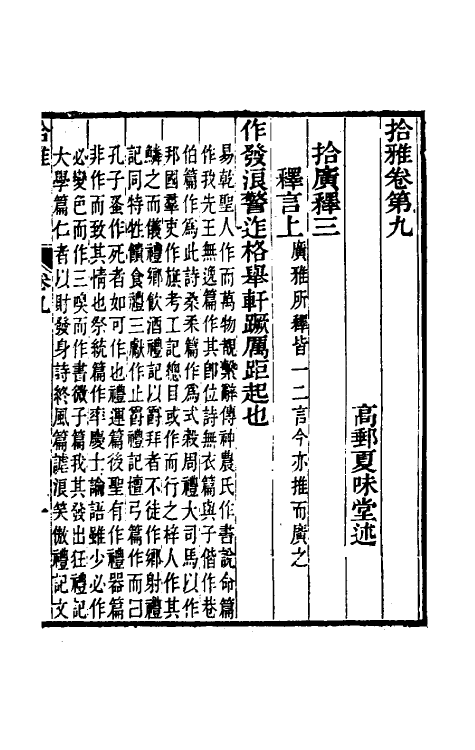 拾雅卷第九
高郵夏味堂述
拾廣釋三
釋言上廣雅所釋皆一二言今亦推而廣之
作發浪警迮格舉軒蹶厲距起也
易乾聖人作而萬物覩繫辭傳神農氏作書說命篇
作我先王無逸篇作其卽位詩無衣篇與子偕作巷
伯篇作爲此詩桑柔篇作爲式穀周禮大司馬以作
邦國羣吏作旗考工記總目或作而行之梓人作其
鱗之而儀禮鄉飲酒禮記以爵拜者不徒作鄉射禮
記同特牲饋食禮三獻作止爵禮記檀弓篇作而曰
孔子蚤作死者如可作也禮運篇後聖有作禮器篇
非作而致其情也祭統篇作率慶士論語雖少必作
必變色而作三嗅而作書微子篇我其發出狂禮記
大學篇仁者以財發身詩終風篇謔浪笑傲禮記文
拾雅
卷九
一